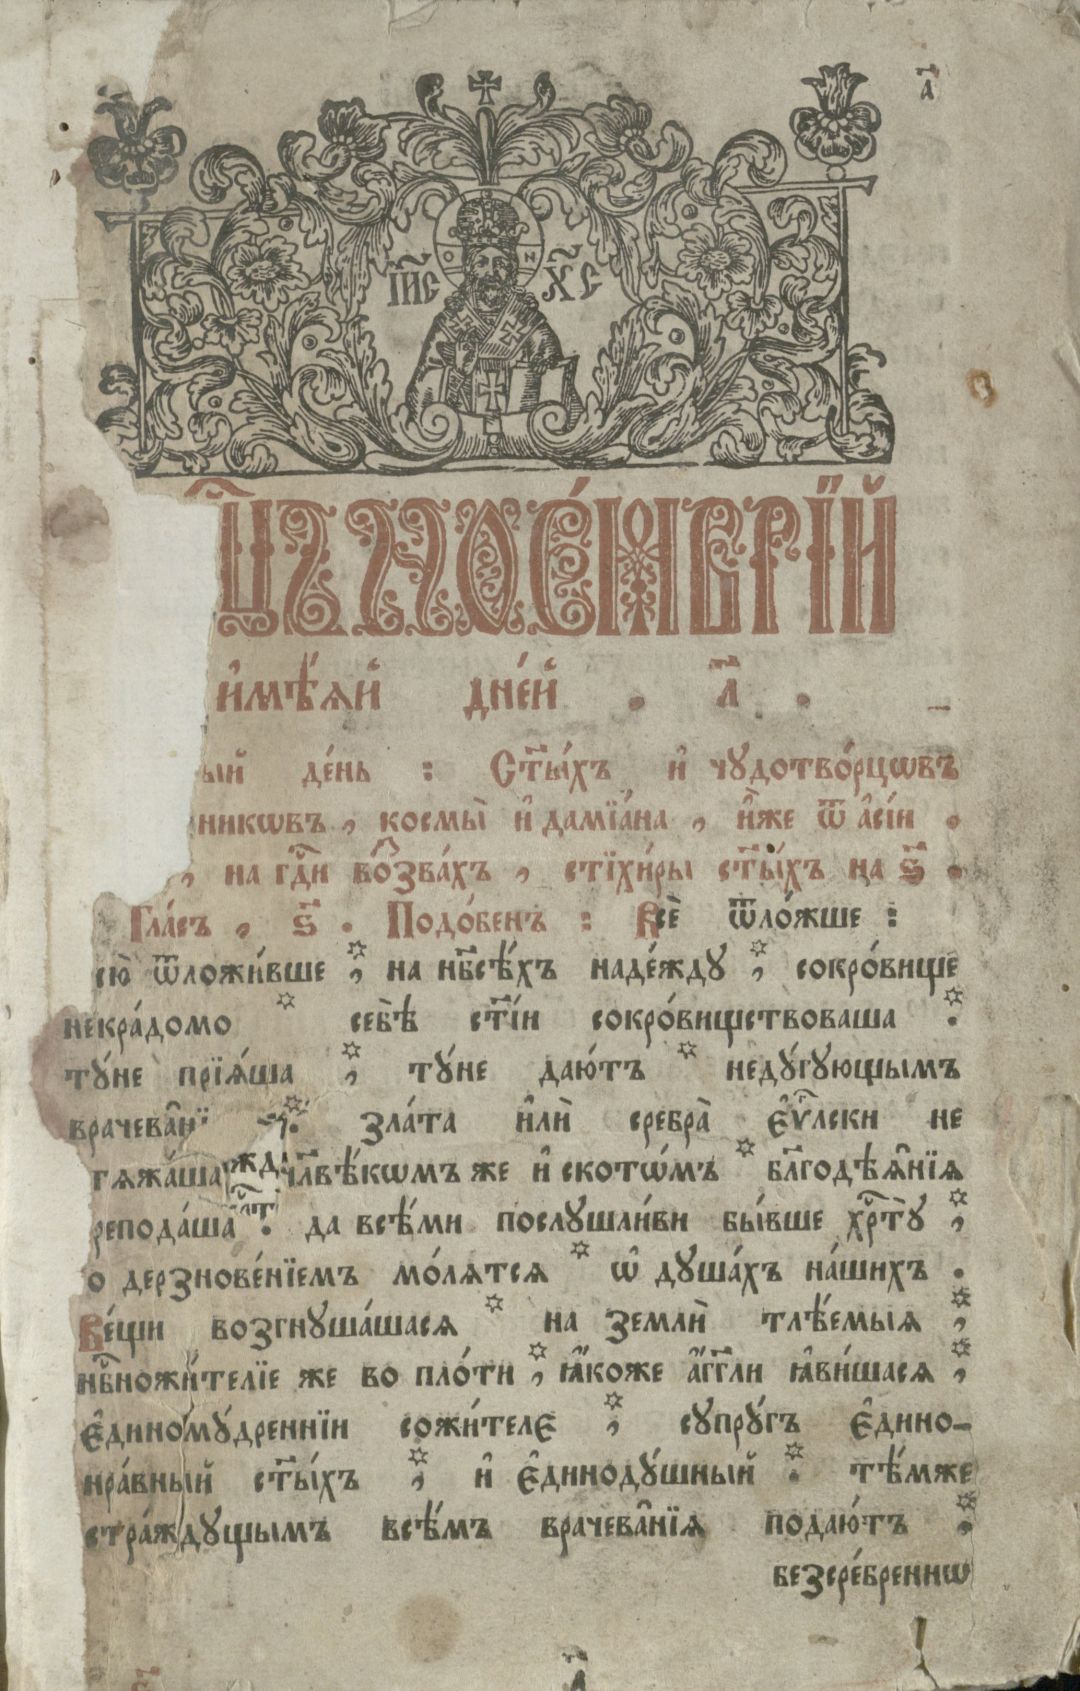 а҃
І҆И҃С Х҃С
мц҃ъ ноѐмврїй
и҆мѣ́ѧй дне́й . л҃ .
ый де́нь : Ст҃ы́хъ и҆ чꙋдотво́рцѡвъ
никѡвъ , космы̀ и҆ дамїа́на , и҆̀же ѿ а҆сі́и .
, на гдⷭ҇и во́звахъ , стїхи́ры ст҃ы́хъ на ѕ҃ .
Гла́съ , ѕ҃ . Подо́бенъ : Всѐ ѿло́жше :
сю̀ ѿложи́вше *, на нб҃сѣ́хъ наде́ждꙋ *, сокро́вище
некра́домо * себѣ̀ ст҃і́и сокро́виществоваша *.
тꙋ́не прїѧ́ша *, тꙋ́не даю́тъ * недꙋ́гꙋющымъ
врачева̑н *. зла́та и҆лѝ сребра̀ є҆ѵⷢ҇лски не
тѧжа́ша чл҃вѣ́кѡмъ же и҆ скотѡ́мъ * бл҃годѣѧ̑нїѧ
репода́ша . да всѣ́ми послꙋшли́ви бы́вше хрⷭ҇тꙋ̀ *,
о дерзнове́нїемъ мо́лѧтсѧ * ѡ҆ дꙋша́хъ на́шихъ .
Ве́щи возгнꙋша́шасѧ * на землѝ тлѣ́емыѧ *,
нб҃ножи́телїе же во пло́ти *, ꙗ҆́коже а҆́гг҃ли ꙗ҆ви́шасѧ *,
є҆диномꙋ́дреннїи сожи́теле *, сꙋпрꙋ́гъ є҆дино-
нра́вный ст҃ы́хъ *, и҆ є҆динодꙋ́шный *. тѣ́мже
стра́ждꙋщымъ всѣ́мъ врачева̑нїѧ подаю́тъ *,
безсре́бренниѡ